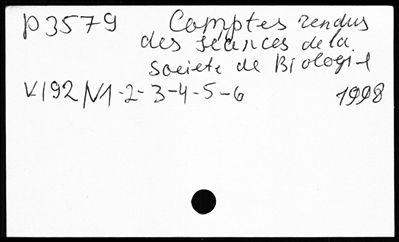 P3579 Comptes rendus
des seances de la
societe de Biologie
V.192 N1-2-3-4-5-6 1998